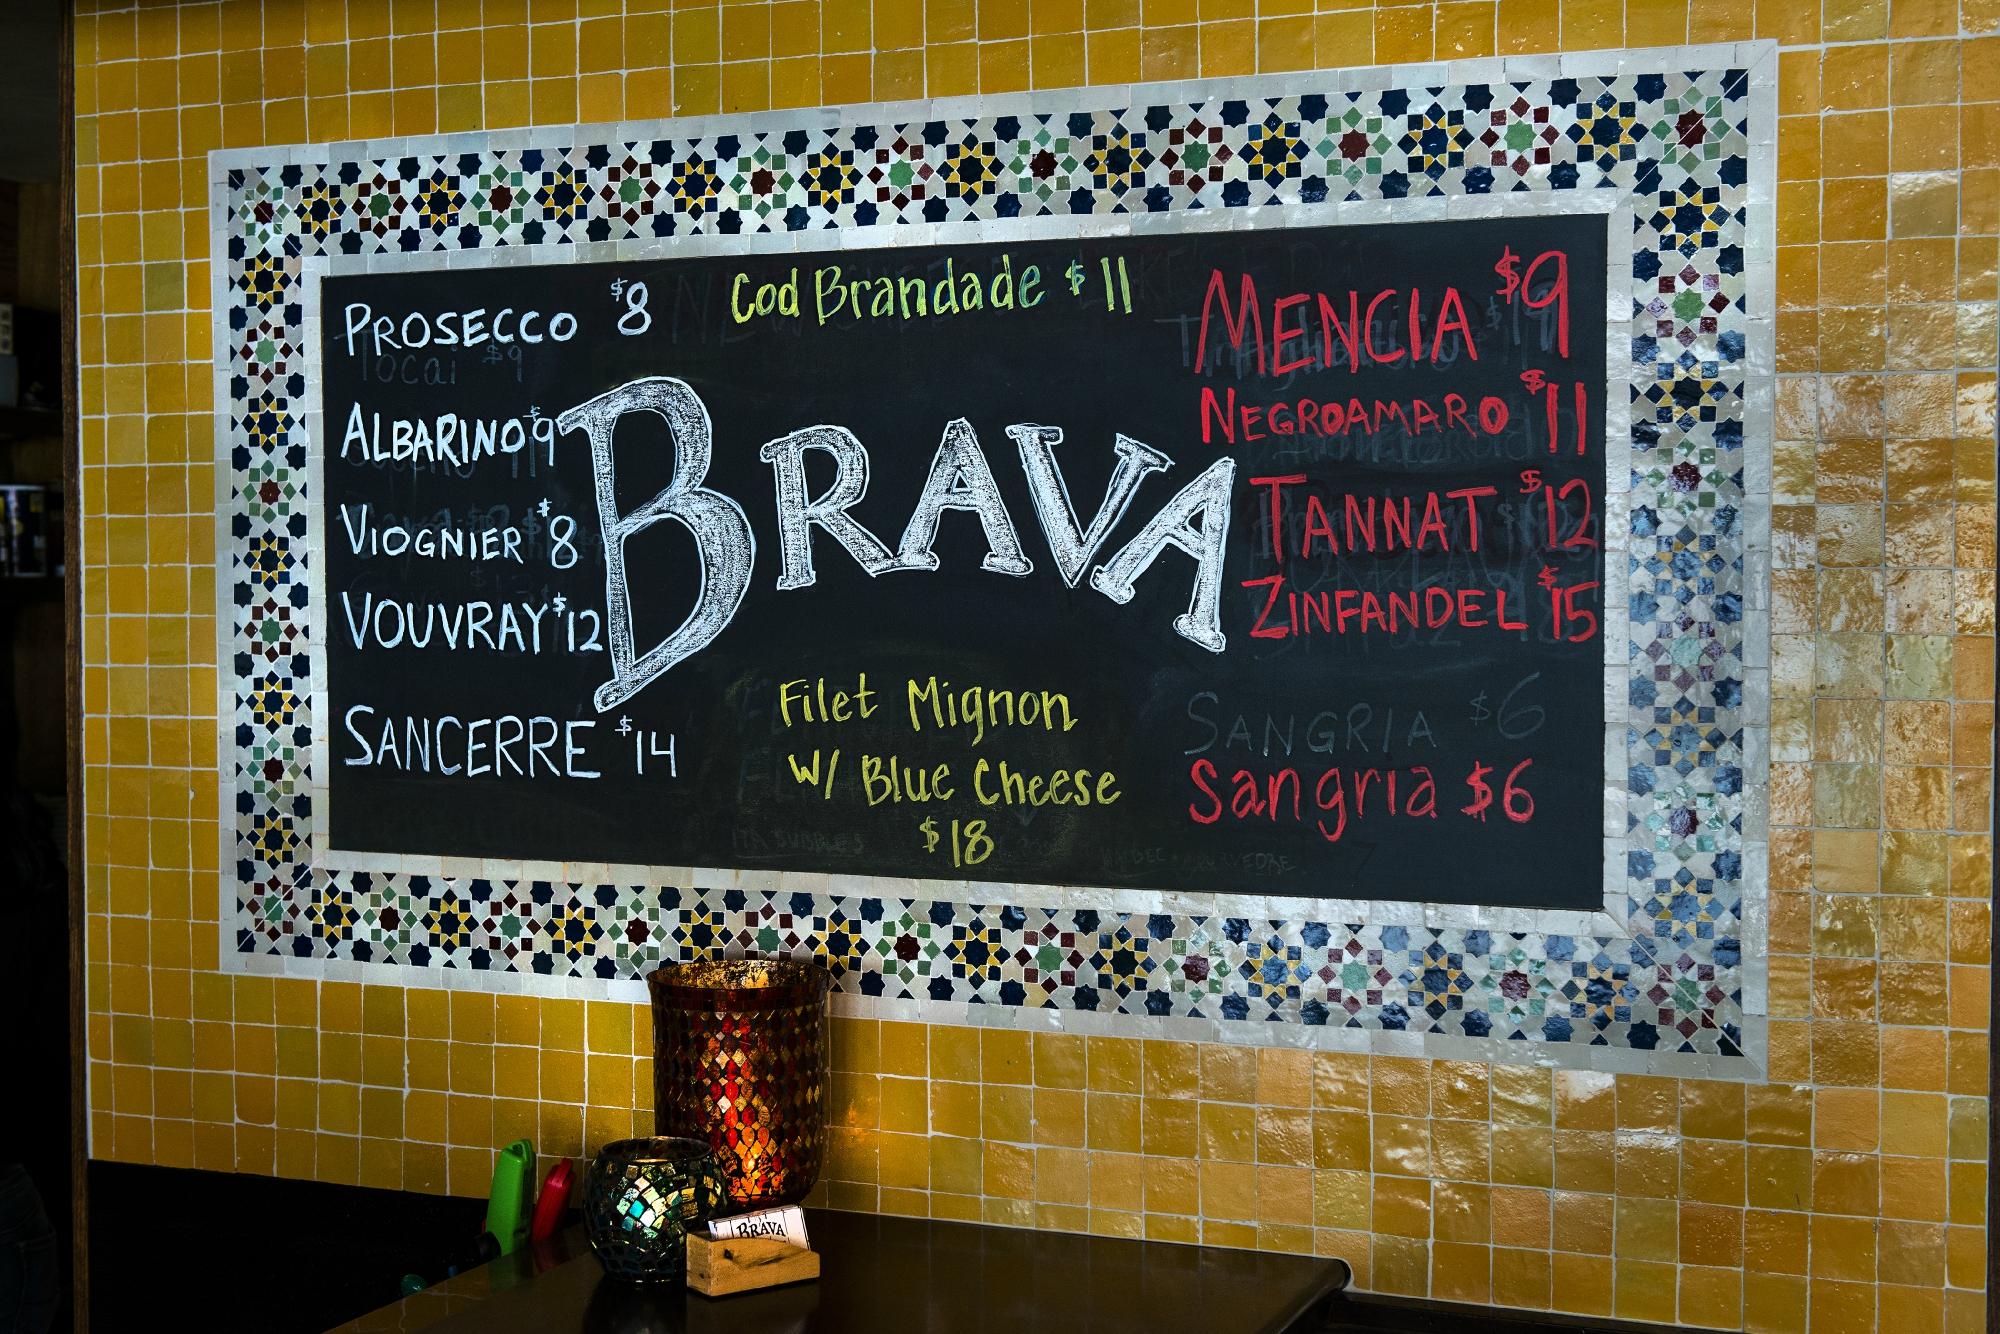 PROSECCO $8
Tocai $9
ALBARINO $9
VIOGNIER $8
VOUVRAY $12
SANCERRE $14
Cod Brandade $11
BRAVA
Filet Mignon
w/ Blue Cheese
$18
ITA BUBBLES
MENCIA $9
NEGROAMARO $11
TANNAT $12
ZINFANDEL $15
SANGRIA $6
Sangria $6
BRAVA